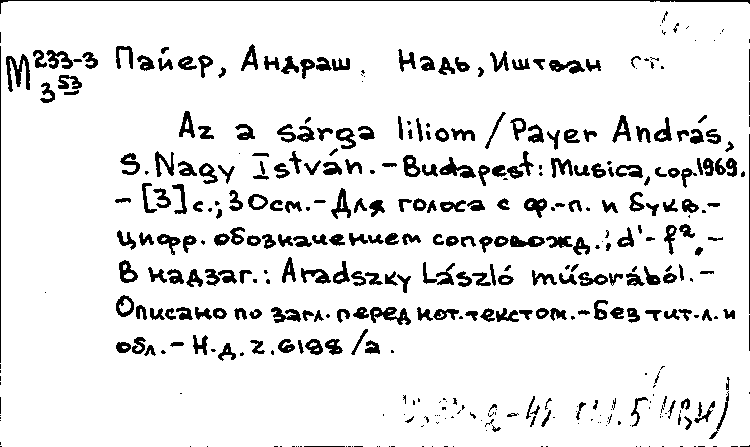 М 233-3 Пайер, Андраш, Надь, Иштван ст.
3 53
Az a sárga liliom / Payer András,
S. Nagy István. – Budapest: Musica, cop. 1969.
– [3] с.; 30 см. – Для голоса с ф.-п. и букв.-
цифр. обозначением сопровожд.; d¹ – f², –
В надзаг.: Aradszky László műsorából. –
Описано по загл. перед нот. текстом. – Без тит. л. и
обл. – Н.д. Z. 6198 / a.